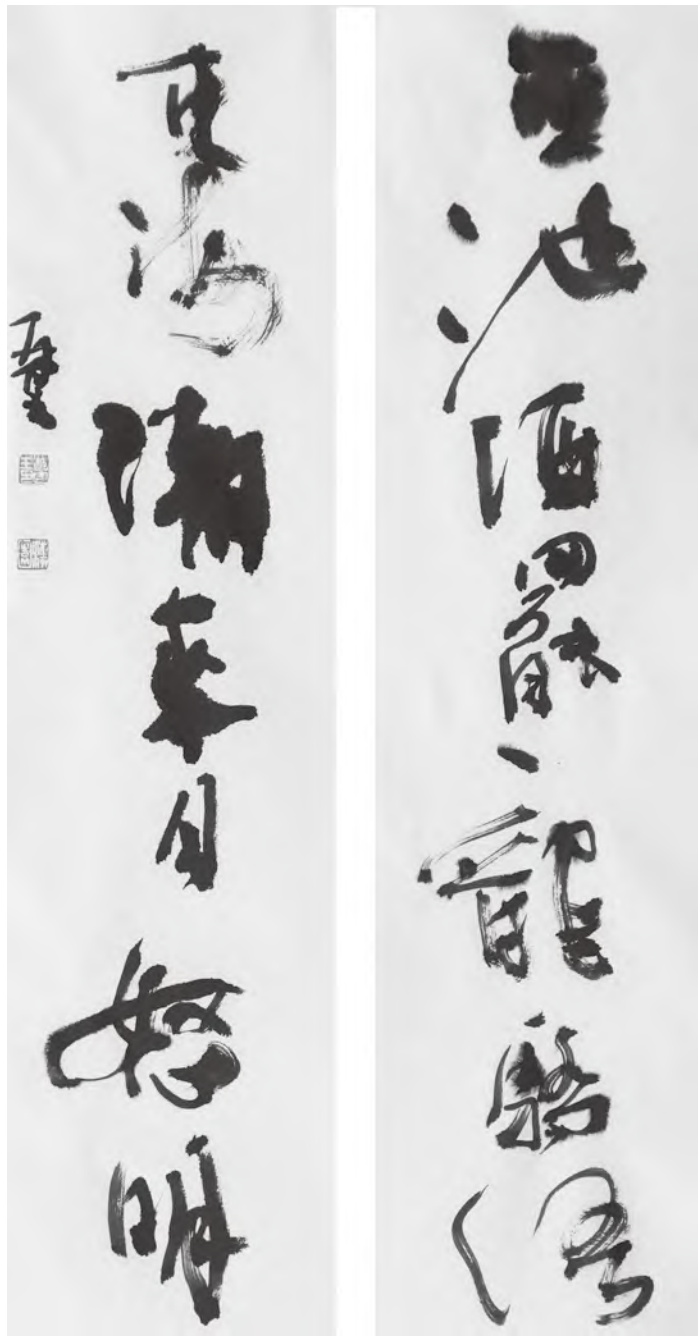 西池酒罷龍驕語
東海潮來月怒明